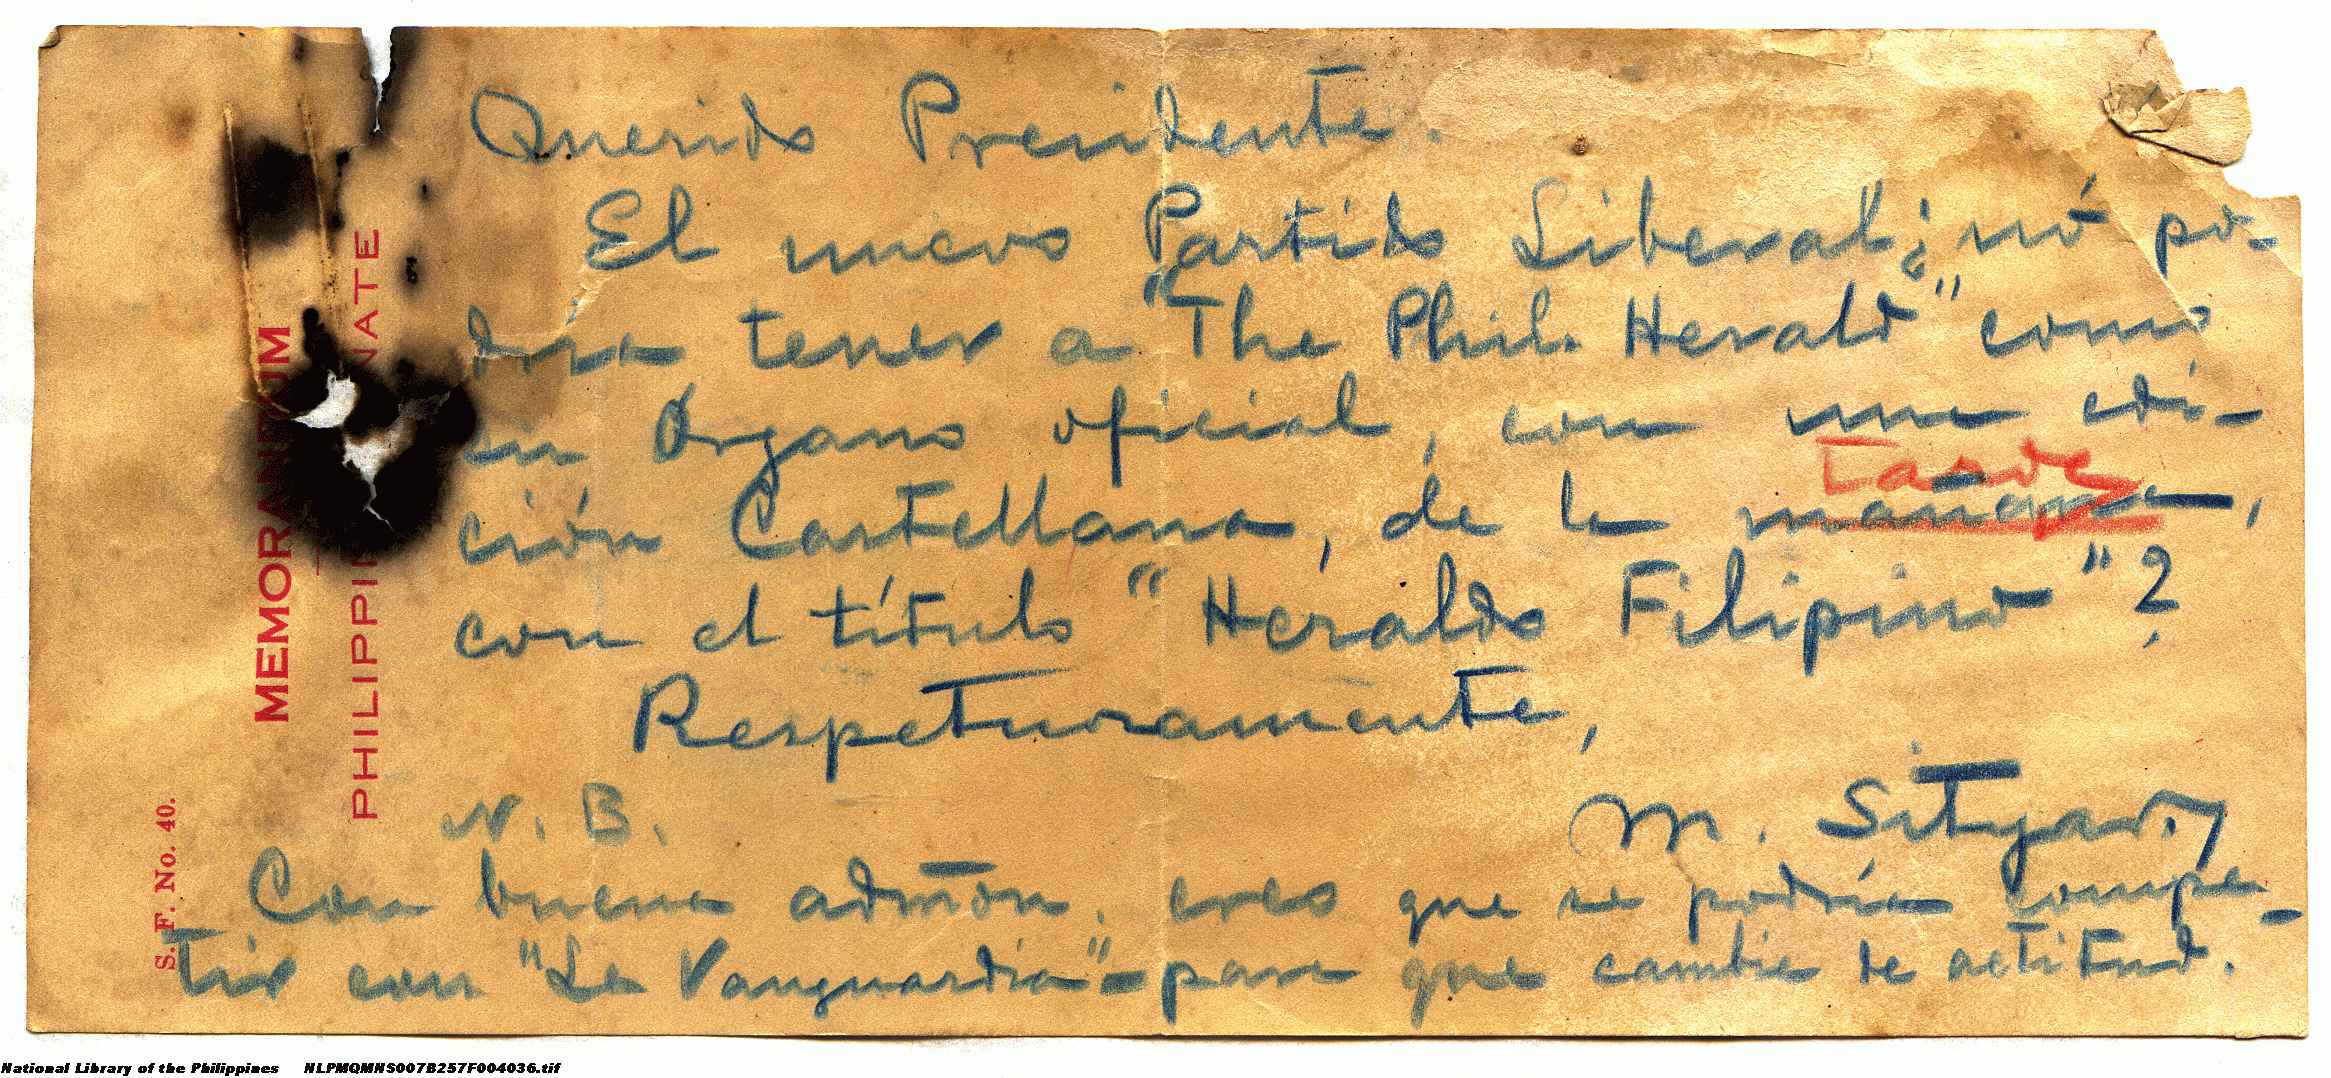 Querido Presidente.
El nuevo "Partido Liberal", ¿nó po-
dría tener a "The Phil. Herald" como
su Órgano oficial, con una edi-
tarde
ción Castellana, de la mañana,
con el título "Heraldo Filipino"?
Respetuosamente,
M. Sityar
N. B.
Con buena admón. creo que se podría compe-
tir con "La Vanguardia" - para que cambie de actitud.
MEMORANDUM
PHILIPPINE SENATE
S. F. No. 40.
National Library of the Philippines NLPMQMNS007B257F004036.tif